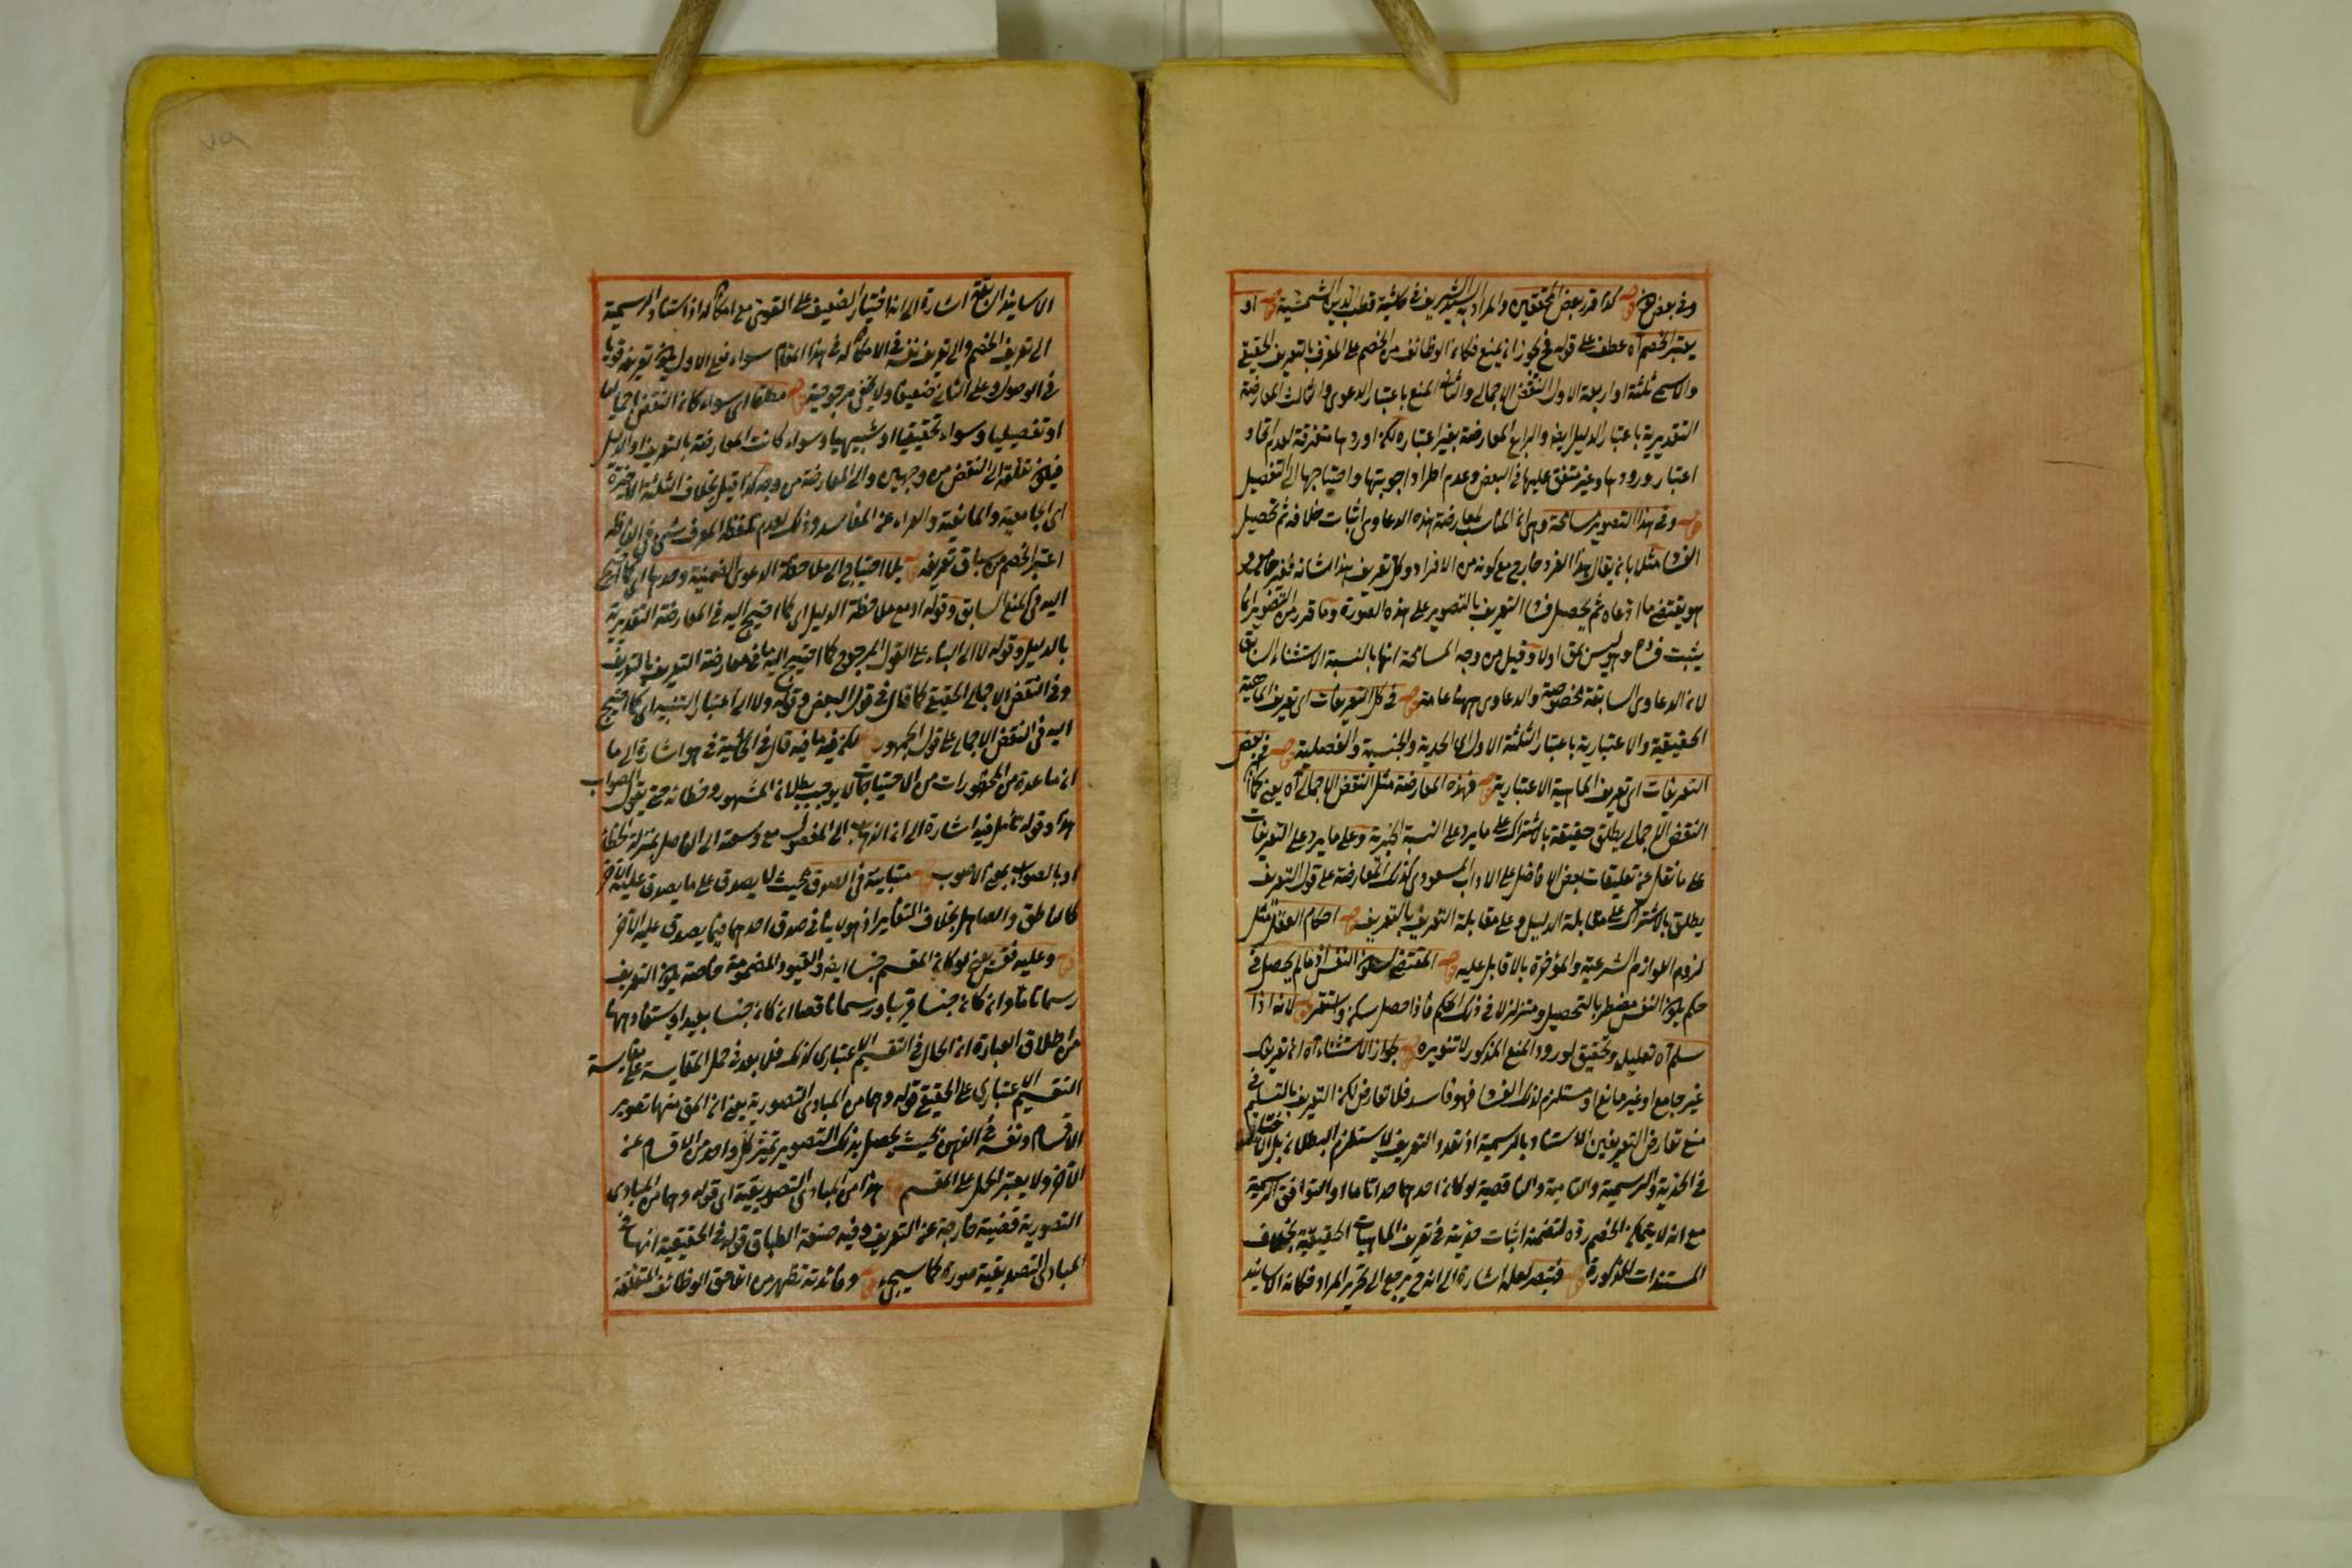 وفى بعض قوله كذا قرر بعض المحققين والمراد به السيد الشريف فى حاشية قطب الدين الشمسية قوله او
يعتبر الخصم آه عطف على قوله فح يجوز ان يمنع فكان الوظائف من الخصم على المعرف بالتعريف الحقيقى
والاسمى ثلثة او اربعة الاول النقض الاجمالى والثانى المنع باعتبار الدعوى والثالث المعارضة
التقديرية باعتبار الدليل ايضا والرابع المعارضة بغير اعتباره لكن اوردها متفرقة لعدم اتحاد
اعتبار ورودها وغير متفق عليها فى البعض وعدم اطراد اجوبتها واحتياجها الى التفصيل
قوله وفى هذا التصوير مسامحة وهى ان المناسب لمعارضة هذه الدعاوى اثبات خلافه ثم تحصيل
الفساد مثلا بان يقال هذا الفرد خارج مع كونه من الافراد وكل تعريف هذا شانه فغير جامع
هو يقتضى ما ادعاه ثم يحصل فساد التعريف بالتصوير على هذه الصورة وما قرر من التصوير انما
يثبت فساده وليس بحق اولا وقيل من وجه المسامحة انها بالنسبة الاستثناء السابق
لان الدعاوى السابقة مخصوصة والدعاوى ههنا عامة قوله فى كل التعريفات اى تعريف الماهية
الحقيقية والاعتبارية باعتبار الثلثة الاول اى الحدية والجنسية والفصلية قوله فى بعض
التعريفات اى تعريف الماهية الاعتبارية قوله فهذه المعارضة مثل النقض الاجمالى آه يعنى كما ان
النقض الاجمالى يطلق حقيقة بالاشتراك على ما يرد على النسبة الخبرية وعلى ما يرد على التعريفات
على ما نقل عن تعليقات بعض الافاضل على الاداب المسعودى كذلك المعارضة على قول التعريف
يطلق بالاشتراك على مقابلة الدليل وعلى مقابلة التعريف بالتعريف قوله احكام العقل مثل
لزوم اللوازم الشرعية والمؤخرة بالاقابل عليه قوله المقتضى لسكون النفس اذ ما لم يحصل فى
حكم يكون النفس مضطر بالتحصيل ومتزلزلا فى ذلك الحكم فاذا حصل سكن واستقر قوله لانه اذا
سلم آه تعليل وتحقيق لورود المنع المذكور لا تنويره قوله بجواز الاستثناء آه اى تعريفك
غير جامع او غير مانع او مستلزم لذلك الفساد فهو فاسد فلا تعارض لكن التعريف بالتسليم فى
منع تعارض التعريفين الاستناد بالرسمية اذ تعدد التعريف لا يستلزم البطلان بل الاختلاف
فى الحدية والرسمية والتامية والناقصية لو كان احدهما حدا تاما او التوافق الرسمية
مع انه لا يتمكن الخصم رده لتضمنه اثبات حدية فى تعريف الماهيات الحقيقية بخلاف
المستندات المذكورة قوله فتبصر لعله اشارة الى انه ح يرجع الى تحرير المراد فكان الاسانيد
الاسانيد الاربعة اشارة الى انه اختيار الضعيف على القوى مع امكانه اذ استناد الرسمية
الى تعريف الخصم والى تعريف نفسه فى الامكان له فى هذا المقام سواء فعلى الاول يكون تعريفه قويا
فى الوصول وعلى الثانى ضعيفا ولا يخفى مرجوحيته قوله مطلقا اى سواء كان النقض اجماليا
او تفصيليا وسواء تحقيقيا او شبيهيا وسواء كانت المعارضة بالتعريف او الدليل
فيكون تعلقه الى النقض من وجهين والى المعارضة من وجه كذا قيل بخلاف الثلثة الاخيرة
اى الجامعية والمانعية والعراء عن المفاسد وذلك لعدم تلفظ المعرف شىء فى الفاظه
اعتبر الخصم من سياق تعريفه قوله بلا احتياج الى ملاحظة الدعوى الضمنية وحدها اى كما احتيج
اليه فى المنع السابق وقوله او مع ملاحظة الدليل اى كما احتيج اليه فى المعارضة التقديرية
بالدليل وقوله لا الى البناء على القول المرجوح كما احتيج اليه ما فى معارضة التعريف بالتعريف
وفى النقض الاجمالى الحقيقى كما قال فى قول البعض وقوله ولا الى اعتبار التشبيه اى كما احتيج
اليه فى النقض الاجمالى على قول الجمهور قوله لكن فيه ما فيه قال فى الحاشية فى هو اشارة الى ما
ان ما عده من المحظورات من الاحتياجات لا يوجب بطلان المشهور وخطائه حتى يقول الصواب
هذا وقوله تأمل فيه اشارة الى ان الذهاب الى المفضول مع وسعة الى الفاضل بمنزلة الخطاء
او بالصواب بمعنى الاصوب قوله متباينة فى الصدق بحيث لا يصدق على ما يصدق عليه الآخر
كالناطق والصاهل بخلاف التغاير اذ هو لا ينافى صدق احدهما فيما يصدق عليه الآخر
قوله وعليه فقس يعنى لو كان المقسم جنسا ايضا والقيود المضمومة خاصة يكون التعريف
رسما تاما وان كان جنسا قريبا ورسما ناقصا ان كان جنسا بعيدا ويستفاد ههنا
من اطلاق العبارة ان الحال فى التقسيم الاعتبارى كذلك فلا بعد فى حمل المقايسة على مقايسة
التقسيم الاعتبارى على الحقيقى قوله وهما من المبادى التصورية يعنى ان الحق منها تصوير
الاقسام ونفسه فى الذهن بحيث يحصل بذلك التصوير تميز كل واحد من الاقسام عن
الآخر ولا يعتبر الحمل على المقسم قوله هذا من المبادى التصديقية اى قوله وهما من المبادى
التصورية قضية خارجة عن التعريف وفيه صنعة الطباق قوله فى الحقيقية انها من
المبادى التصديقية صورة كما سيجىء قوله وفائدته تظهر من اغامق الوظائف المتعلقة